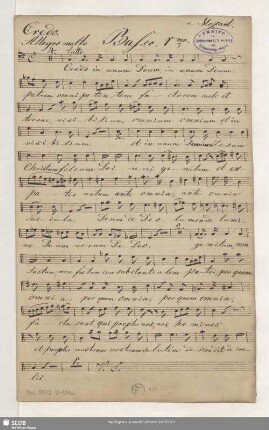 Credo. Basso. 1mo
Allegro molto
Tutti
Credo in unum Deum in unum Deum
patrem omni po ten tem fa ctorem coeli et
terrae, visi bi lium, omnium omnium et in
visi bi lium. et in unum Dominum Jesum
Christum filium Dei u ni ge nitum et ex
pa tre natum ante omnia, ante omnia
sae cula. Deum de De o lumen de lumi
ne Deum verum de Deo, genitum, non
factum, non factum con substanti a lem pa tri, per quem
omni a, per quem omnia, per quem omnia,
fa cta sunt qui propter nos, nos ho mines
et propter nostram nostram sa lutem de scendit de coe
lis.
V. S.
SLUB